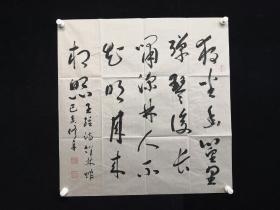 独坐幽篁里
弹琴复长
啸深林人不
知明月来
相照 王维诗竹林馆
己亥